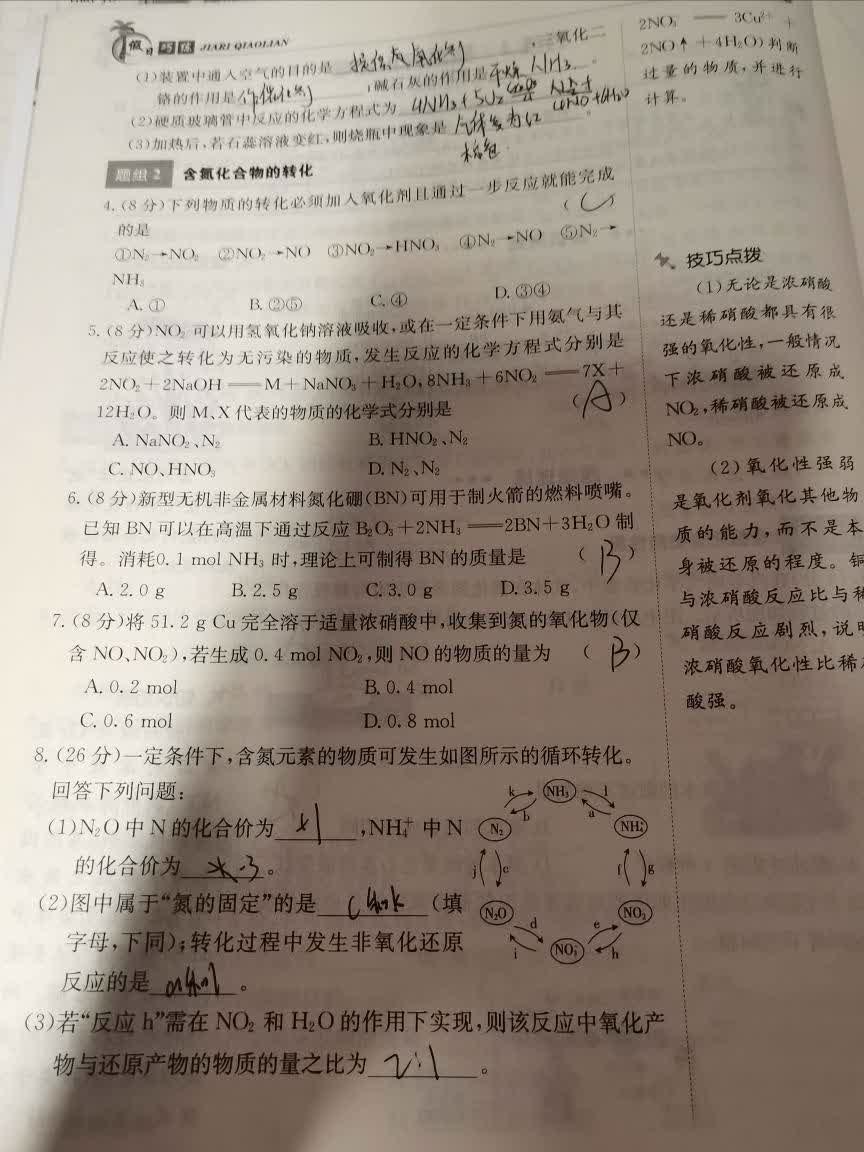 假日巧练 JIARI QIAOLIAN
,三氧化二
(1)装置中通入空气的目的是
铬的作用是作催化剂,碱石灰的作用是干燥NH₃
(2)硬质玻璃管中反应的化学方程式为
(3)加热后,若石蕊溶液变红,则烧瓶中现象是 气体变为红
棕色
题组2 含氮化合物的转化
4.(8分)下列物质的转化必须加入氧化剂且通过一步反应就能完成
的是 ( C )
①N₂→NO₂ ②NO₂→NO ③NO₂→HNO₃ ④N₂→NO ⑤N₂→
NH₃
A. ① B. ②⑤ C. ④ D. ③④
5.(8分)NO₂可以用氢氧化钠溶液吸收,或在一定条件下用氨气与其
反应使之转化为无污染的物质,发生反应的化学方程式分别是
2NO₂+2NaOH══M+NaNO₃+H₂O,8NH₃+6NO₂══7X+
12H₂O。则M、X代表的物质的化学式分别是 ( A )
A. NaNO₂、N₂ B. HNO₂、N₂
C. NO、HNO₃ D. N₂、N₂
6.(8分)新型无机非金属材料氮化硼(BN)可用于制火箭的燃料喷嘴。
已知BN可以在高温下通过反应B₂O₃+2NH₃══2BN+3H₂O制
得。消耗0.1 mol NH₃时,理论上可制得BN的质量是 ( B )
A. 2.0 g B. 2.5 g C. 3.0 g D. 3.5 g
7.(8分)将51.2 g Cu完全溶于适量浓硝酸中,收集到氮的氧化物(仅
含NO、NO₂),若生成0.4 mol NO₂,则NO的物质的量为 ( B )
A. 0.2 mol B. 0.4 mol
C. 0.6 mol D. 0.8 mol
8.(26分)一定条件下,含氮元素的物质可发生如图所示的循环转化。
回答下列问题:
(1)N₂O中N的化合价为 +1 ,NH₄⁺中N
的化合价为 -3 。
(2)图中属于“氮的固定”的是 c和k (填
字母,下同);转化过程中发生非氧化还原
反应的是 a和l 。
(3)若“反应h”需在NO₂和H₂O的作用下实现,则该反应中氧化产
物与还原产物的物质的量之比为 2:1 。
k NH₃ l
b a
N₂ NH₄⁺
j c f g
N₂O NO₂
d e
i NO₃⁻ h
2NO₃⁻ ══ 3Cu²⁺ +
2NO↑+4H₂O)判断
过量的物质,并进行
计算。
技巧点拨
(1)无论是浓硝酸
还是稀硝酸都具有很
强的氧化性,一般情况
下浓硝酸被还原成
NO₂,稀硝酸被还原成
NO。
(2)氧化性强弱
是氧化剂氧化其他物
质的能力,而不是本
身被还原的程度。铜
与浓硝酸反应比与稀
硝酸反应剧烈,说明
浓硝酸氧化性比稀
酸强。